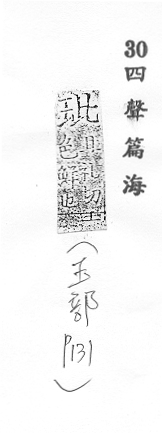 30四聲篇海
玼且礼切玉
色鮮也
(玉部P131)